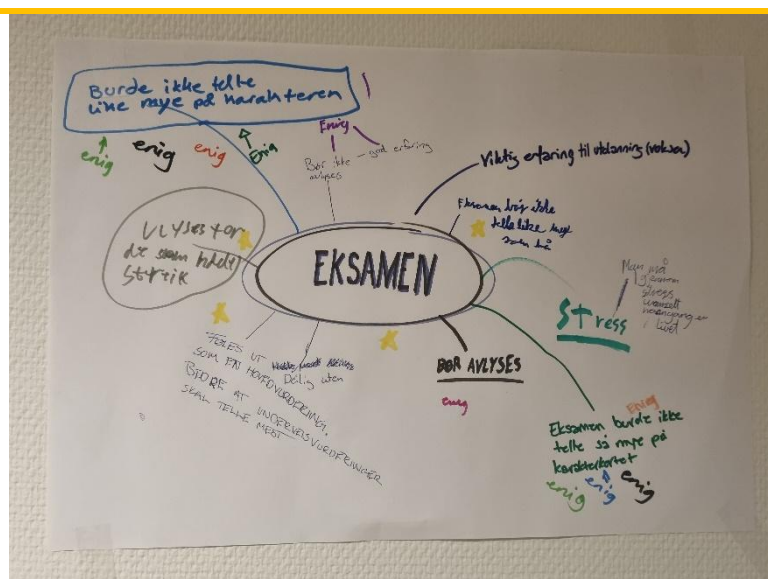 Burde ikke telte
like mye på karakteren
enig
enig
enig
Enig
Enig
Bør ikke
avlyses
god erfaring
Viktig erfaring til utdanning (voksen)
Eksamen bør ikke
telle like mye
som nå
EKSAMEN
ULYSES FOR
de som hadde
Streik
Stress
Man må
gjennom
stress
uansett
livet
BØR AVLYSES
enig
TELLES UT
SOM EN HOVEDVURDERING.
BEDRE AT UNDERVEISVURDERINGER
SKAL TELLE MEST
Dårlig uten
Enig
Eksamen burde ikke
telle så mye på
karakterkortet
enig
enig
enig